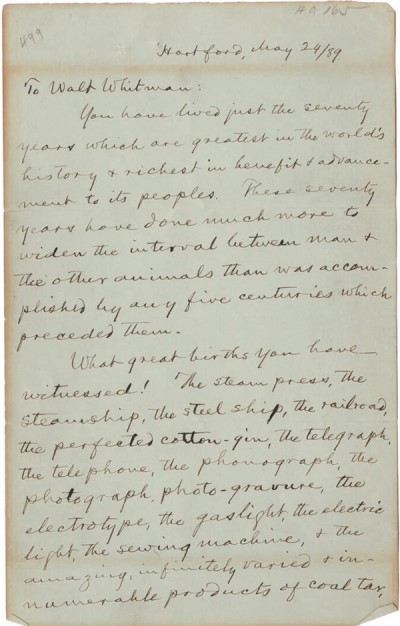 499
HA 165
Hartford, May 24/89.
To Walt Whitman:
You have lived just the seventy
years which are greatest in the world's
history & richest in benefit & advance-
ment to its peoples. These seventy
years have done much more to
widen the interval between man &
the other animals than was accom-
plished by any five centuries which
preceded them.
What great births you have
witnessed! The steam press, the
steamship, the steel ship, the railroad,
the perfected cotton-gin, the telegraph,
the telephone, the phonograph, the
photograph, photo-gravure, the
electrotype, the gaslight, the electric
light, the sewing machine, & the
amazing, infinitely varied & in-
numerable products of coal tar,